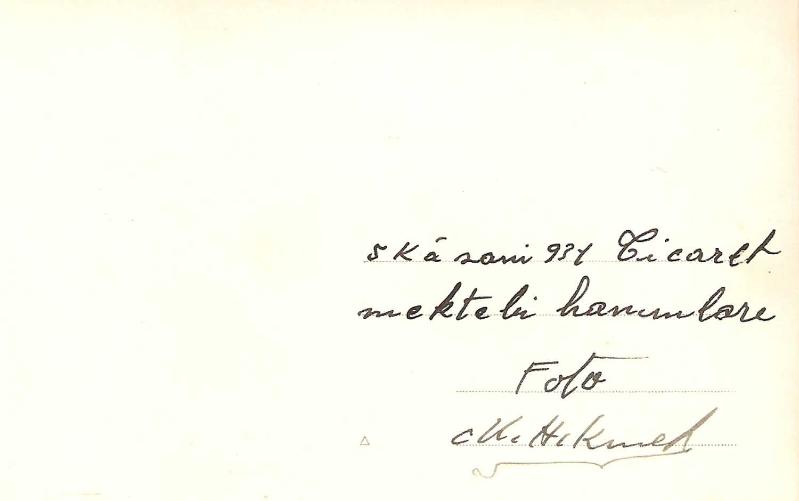 5 Kâ sani 931 Ticaret
mektebi hanımları
Foto
M. Hikmet